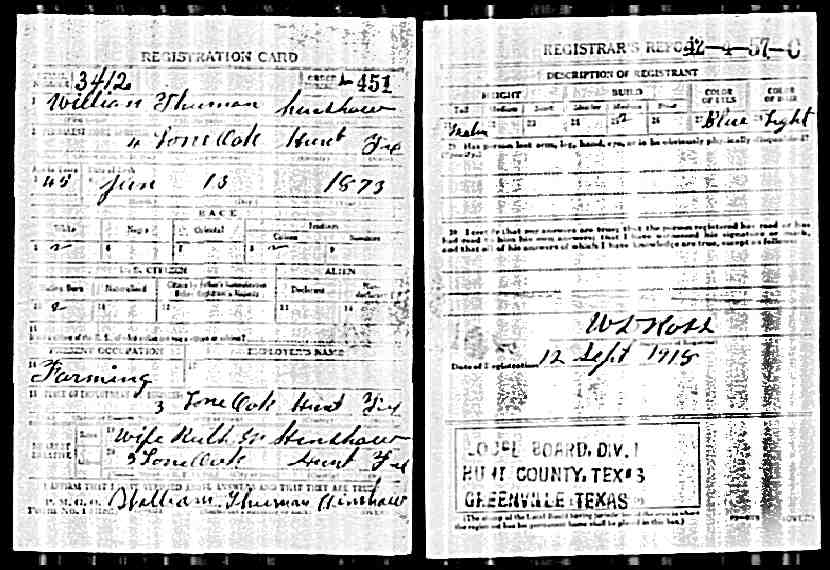 REGISTRATION CARD
3412
451
William Thurman Hinshaw
4 Lone Oak Hunt Tex
45 Jun 13 1873
RACE
White Negro Oriental Indian
Citizen
5 6 7 8 9
U.S. CITIZEN ALIEN
Native Born Naturalized Declarant
10 11 12 13 14
15
PRESENT OCCUPATION EMPLOYER'S NAME
Farming
3 Lone Oak Hunt Tex
Wife Ruth Hinshaw
3 Lone Oak Hunt Tex
I AFFIRM THAT I HAVE VERIFIED ABOVE ANSWERS AND THAT THEY ARE TRUE
William Thurman Hinshaw
REGISTRAR'S REPORT 42-4-37-C
DESCRIPTION OF REGISTRANT
HEIGHT BUILD COLOR OF EYES COLOR OF HAIR
Tall Medium Short Slender Medium Stout
22 23 24 25 26 27 Blue 28 Light
29 Has person lost arm, leg, hand, eye, or is he obviously physically disqualified?
(Specify.)
30 I certify that my answers are true; that the person registered has read or has
had read to him his own answers; that I have witnessed his signature or mark,
and that all of his answers of which I have knowledge are true, except as follows:
W D Ross
Date of Registration 12 Sept 1918
LOCAL BOARD, DIV. 1
HUNT COUNTY, TEXAS
GREENVILLE TEXAS
(The stamp of the Local Board having jurisdiction of the area in which
the registrant has his permanent home shall be placed in this box.)